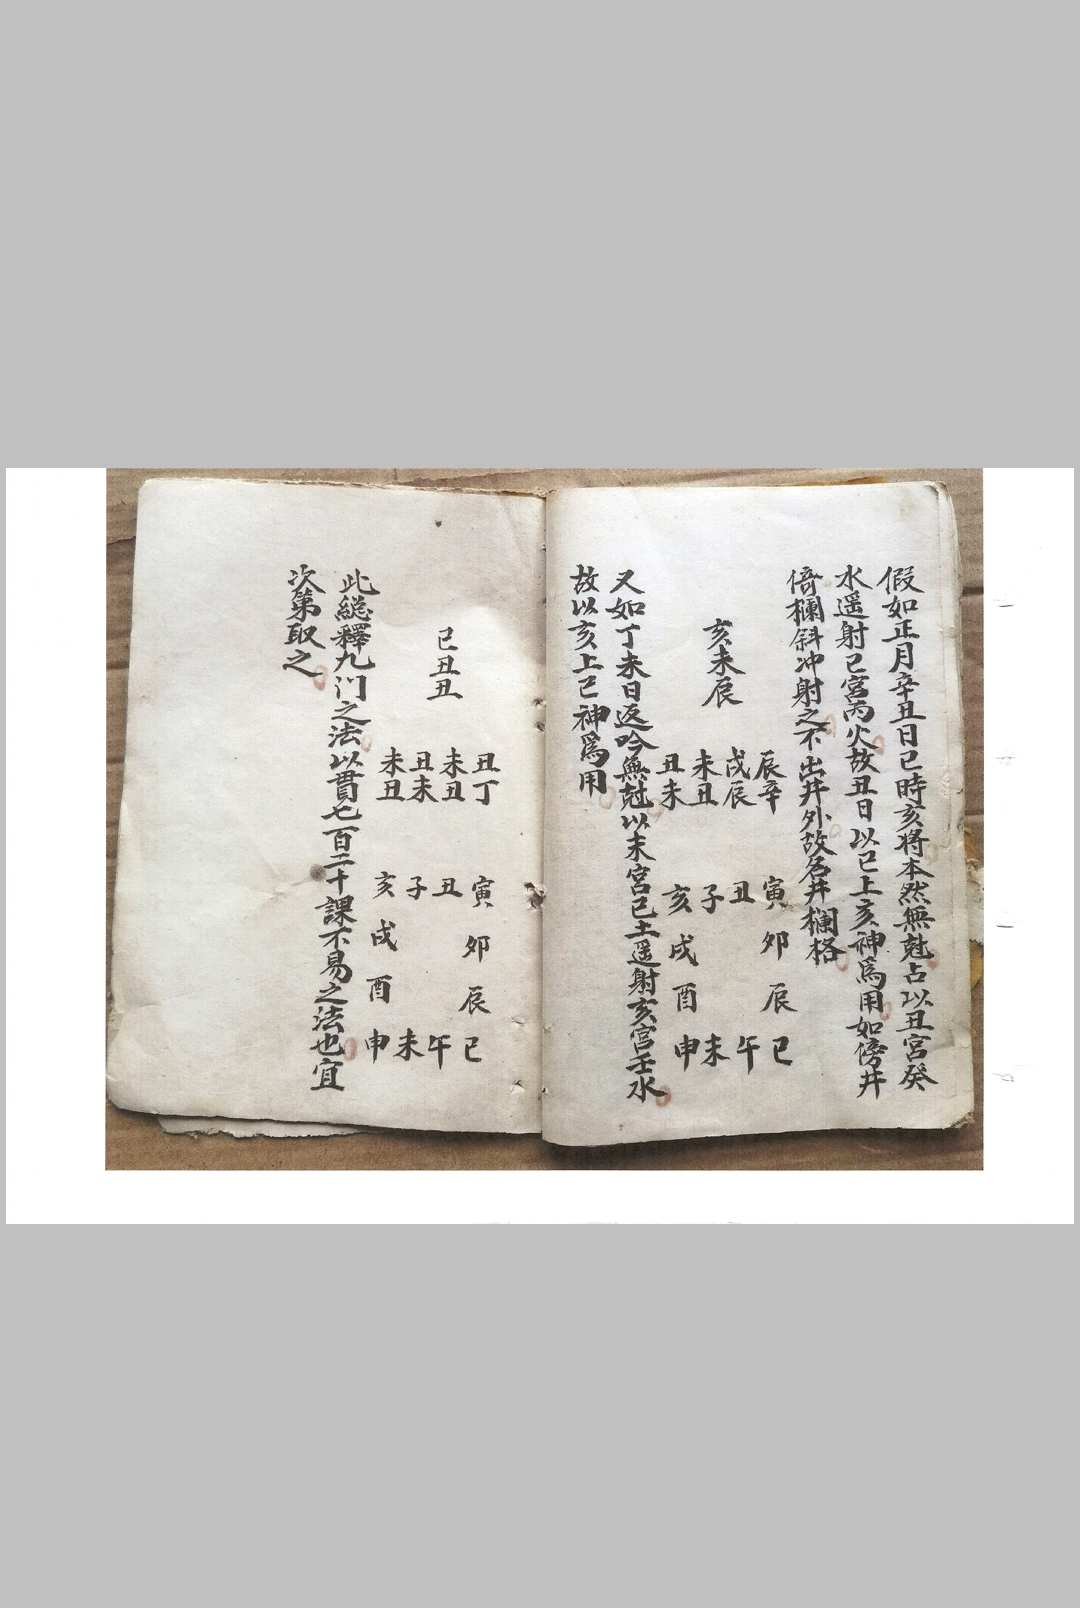 假如正月辛丑日巳時亥将本然無尅占以丑宮癸
水遥射巳宮丙火故丑日以巳上亥神爲用如傍井
倚欄斜冲射之不出井外故名井欄格
亥未辰
辰戌未丑
辛辰丑未
寅丑子亥
卯戌
辰酉
巳午未申
又如丁未日返吟無尅以未宮己土遥射亥宮壬水
故以亥上巳神爲用
巳丑丑
丑未丑未
丁丑未丑
寅丑子亥
卯戌
辰酉
巳午未申
此総釋九门之法以貫七百二十課不易之法也宜
次第取之